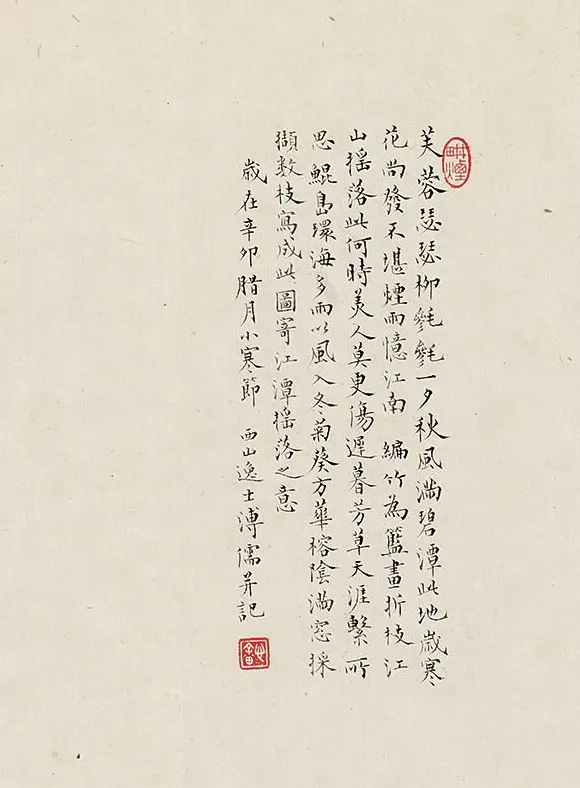 芙蓉瑟瑟柳毿毿一夕秋風滿碧潭此地歲寒
花尚發不堪煙雨憶江南 編竹為籃畫折枝江
山搖落此何時美人莫更傷遲暮芳草天涯繫所
思 鯤島環海多雨以風入冬菊葵方華榕陰滿窓採
擷数枝寫成此圖寄江潭搖落之意
歲在辛卯腊月小寒節 西山逸士溥儒并記